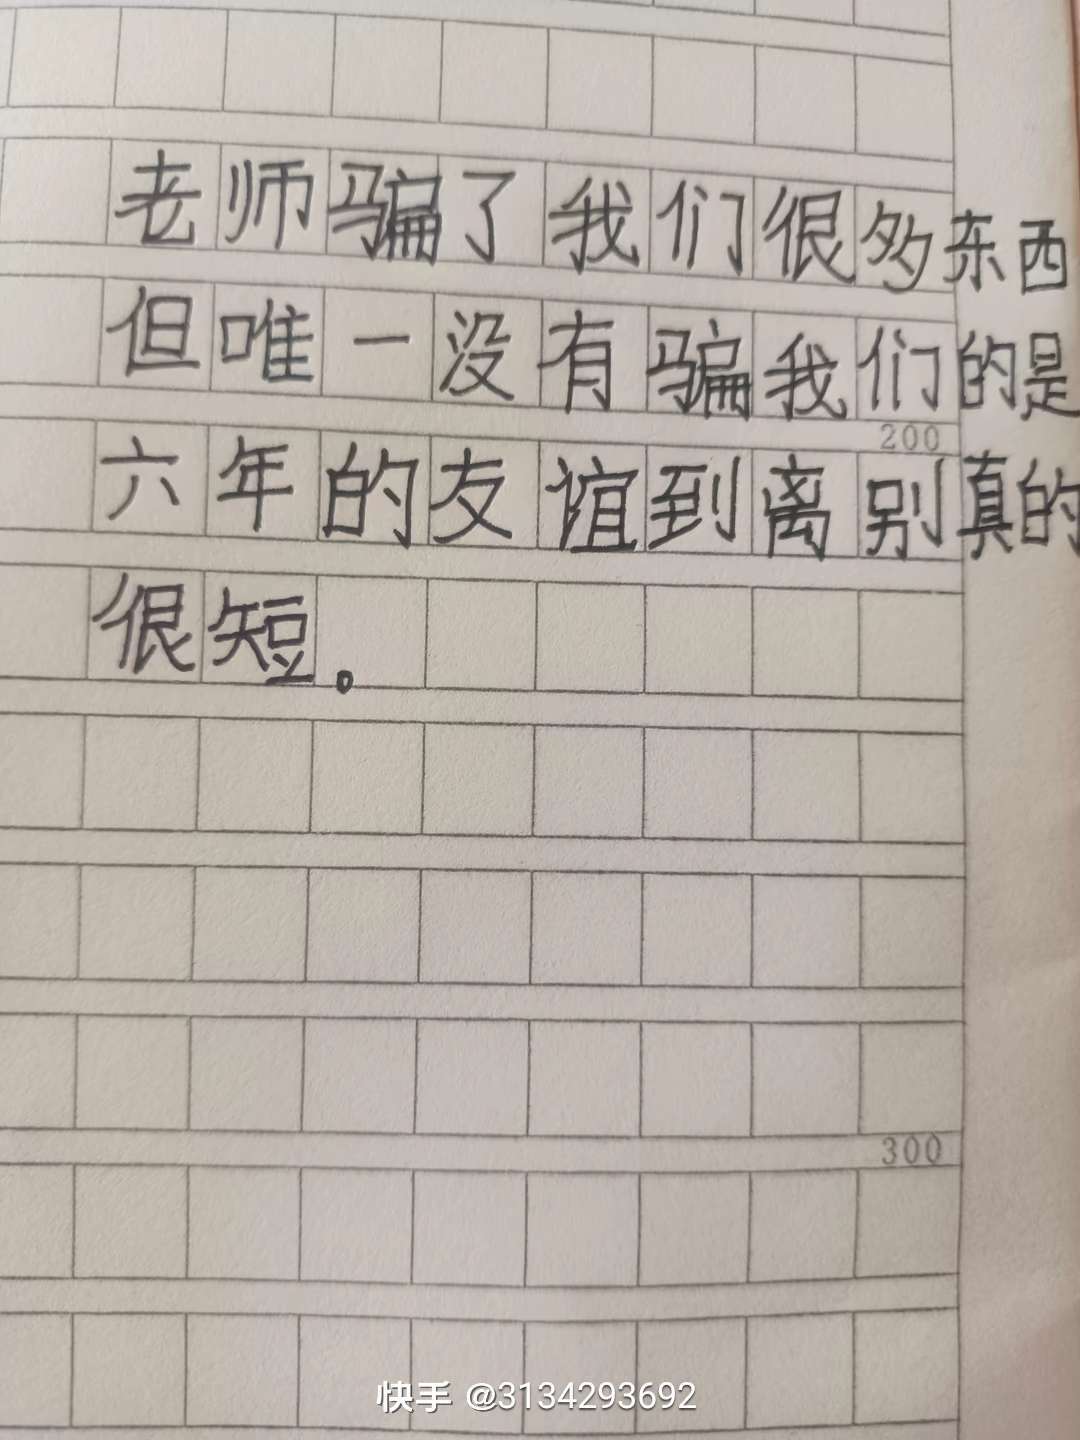 老师骗了我们很多东西
但唯一没有骗我们的是
200
六年的友谊到离别真的
很短。
300
快手 @3134293692